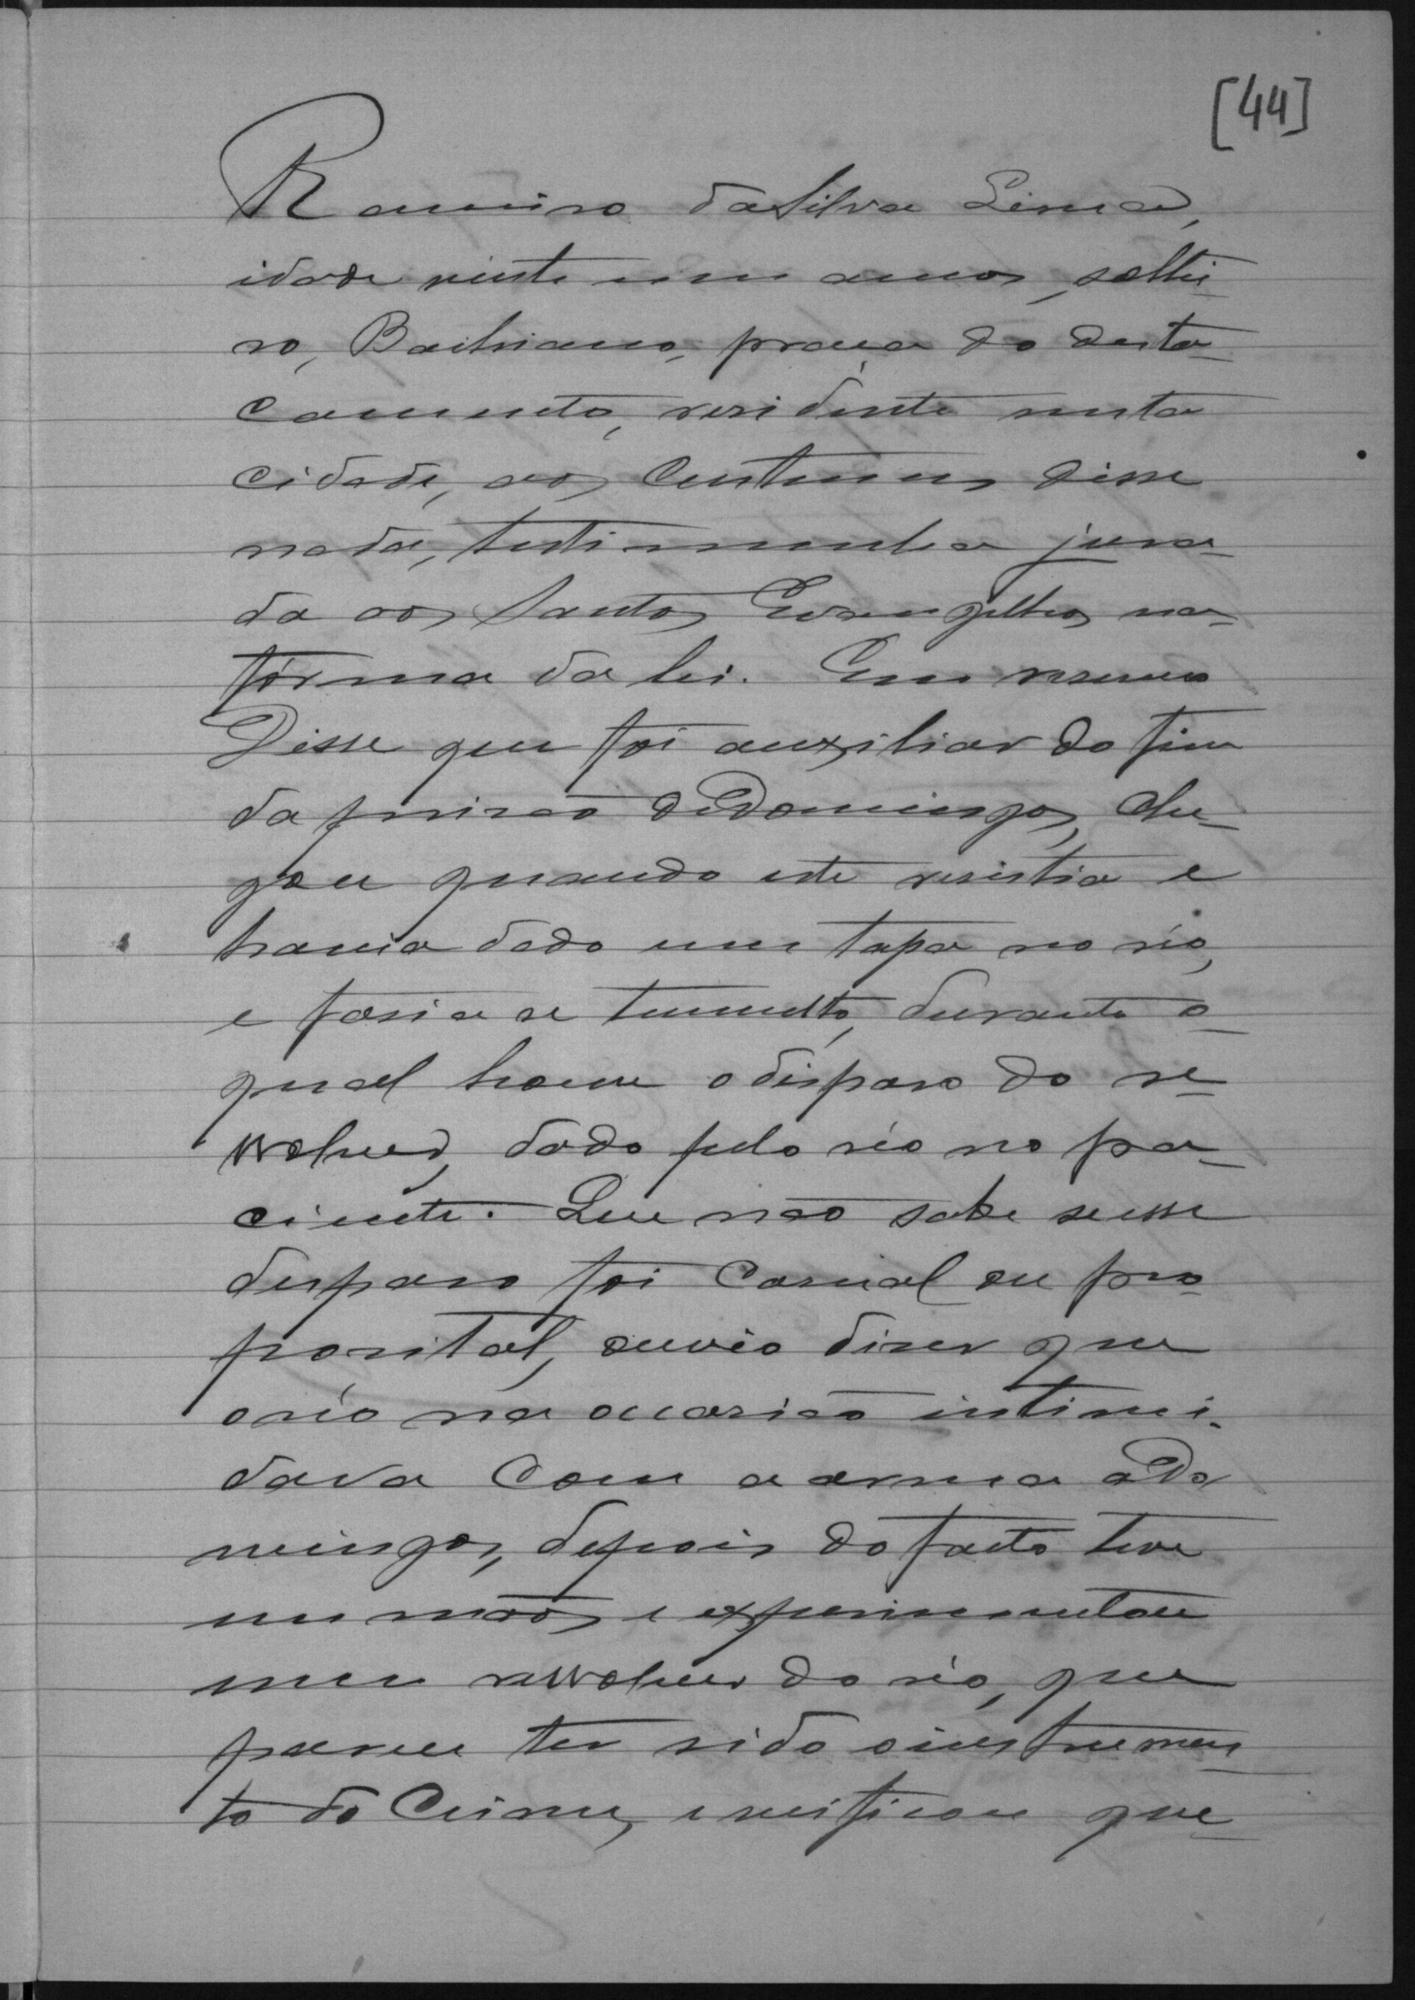 [44]
Ramiro da Silva Lima,
idade vinte um annos, soltei-
ro, Bachiano, praça do desta-
camento, residente nesta
cidade, aos Custumes disse
nada, testimunha jura-
da aos Santos Evangelhos na
fórma da lei. Em resumo
Disse que foi auxiliar do fim
da prisão de Domingos, che-
gou quando este resistia e
havia dado um tapa no réo,
e fasia se tumulto, durante o
qual houve o disparo do re-
wolver, dado pelo réo no pa-
ciente. Que não sabe se esse
disparo foi Casual ou pro-
posital, ouvio diser que
o réo na occasião intimi-
dava Com a arma a Do
mingos, depois do facto teve
em mãos e experimentou
um rewolver do réo, que
parece ter sido o instrumen
to do Crime, e verificou que